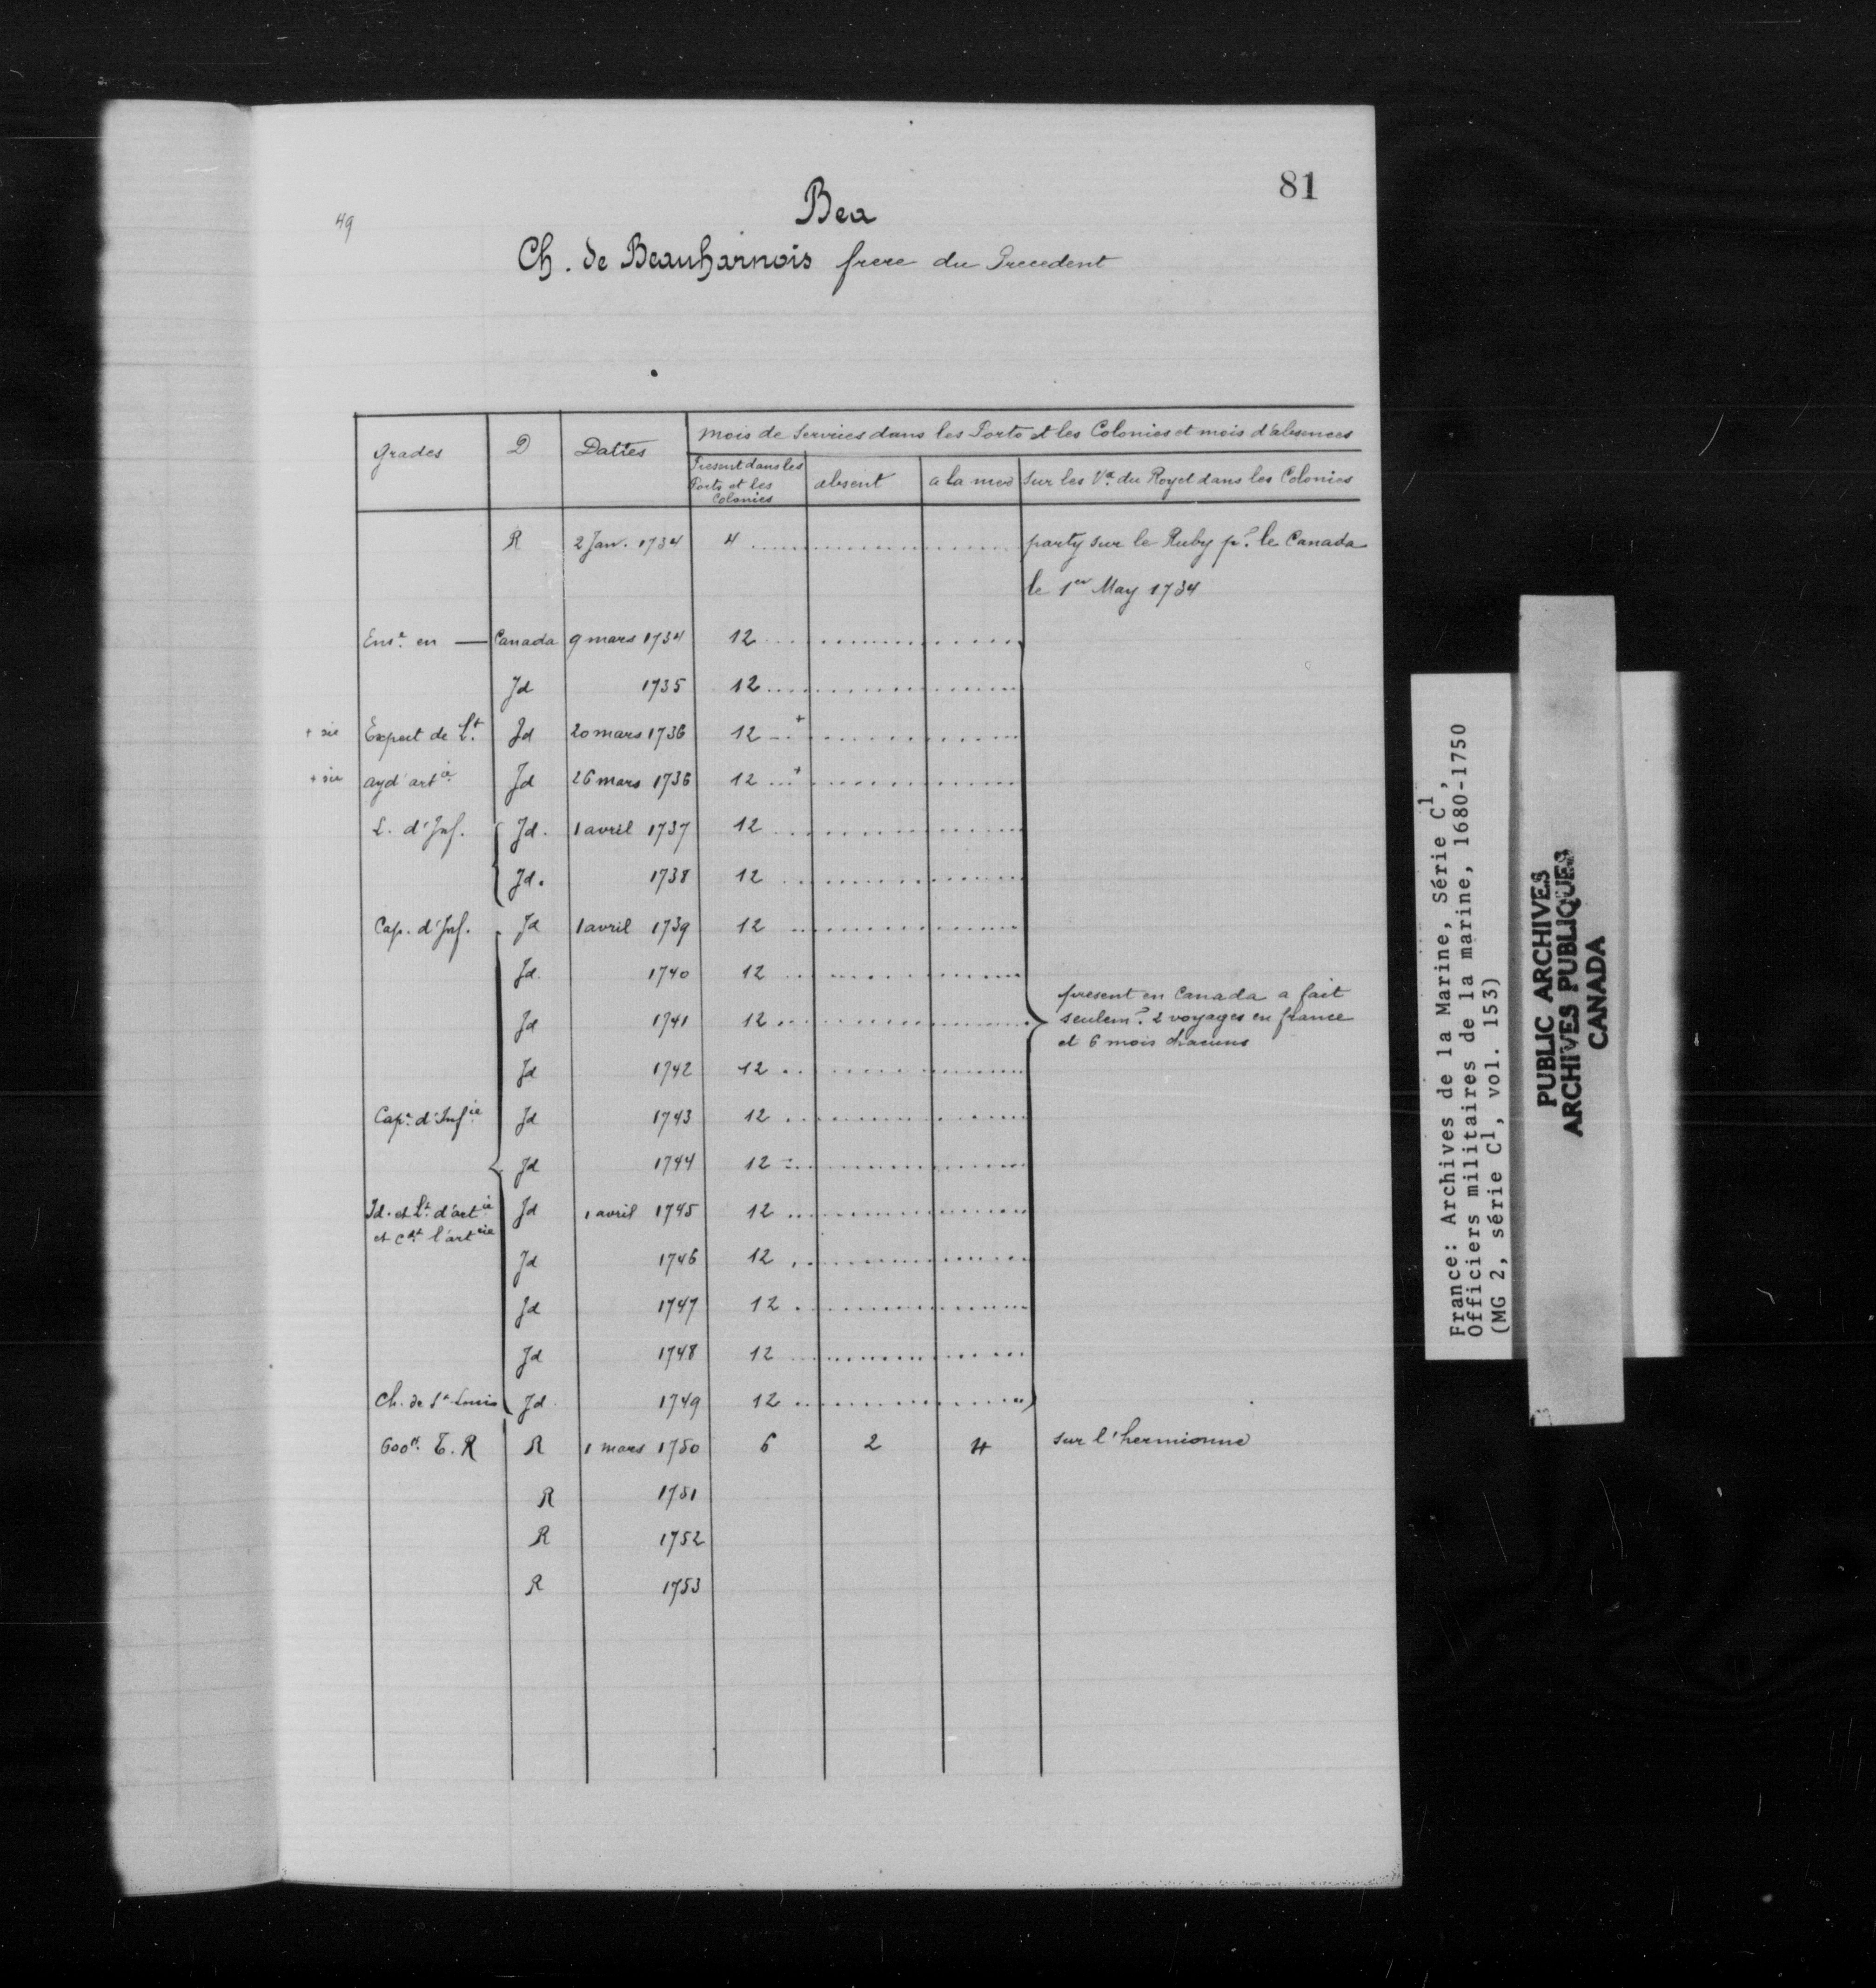 81
49
Bea
Ch. de Beauharnois frere du Precedent
grades D Dattes mois de Services dans les Ports et les Colonies et mois d'absences
Present dans les Ports et les Colonies absent a la mer Sur les Vx. du Roy et dans les Colonies
R 2 Jan. 1734 4 party sur le Ruby pr. le Canada
le 1er May 1734
Ense. en — Canada 9 mars 1734 12
Jd 1735 12
+ sic Expect de Lt. Jd 20 mars 1736 12 +
+ sic ayd' artie Jd 26 mars 1736 12 +
L. d'Inf. Jd. 1 avril 1737 12
Jd. 1738 12
Cap. d'Inf. Jd 1 avril 1739 12
Jd. 1740 12
present en Canada a fait
Jd 1741 12 seulemt. 2 voyages en france
et 6 mois chacuns
Jd 1742 12
Cape. d'Infie Jd 1743 12
Jd 1744 12
Id. et Lt. d'artie Jd 1 avril 1745 12
et cdt l'artrie
Jd 1746 12
Jd 1747 12
Jd 1748 12
Ch. de St Louis Jd 1749 12
600tt. T. R R 1 mars 1750 6 2 4 sur l'hermionne
R 1751
R 1752
R 1753
France: Archives de la Marine, Série C1,
Officiers militaires de la marine, 1680-1750
(MG 2, série C1, vol. 153)
PUBLIC ARCHIVES
ARCHIVES PUBLIQUES
CANADA